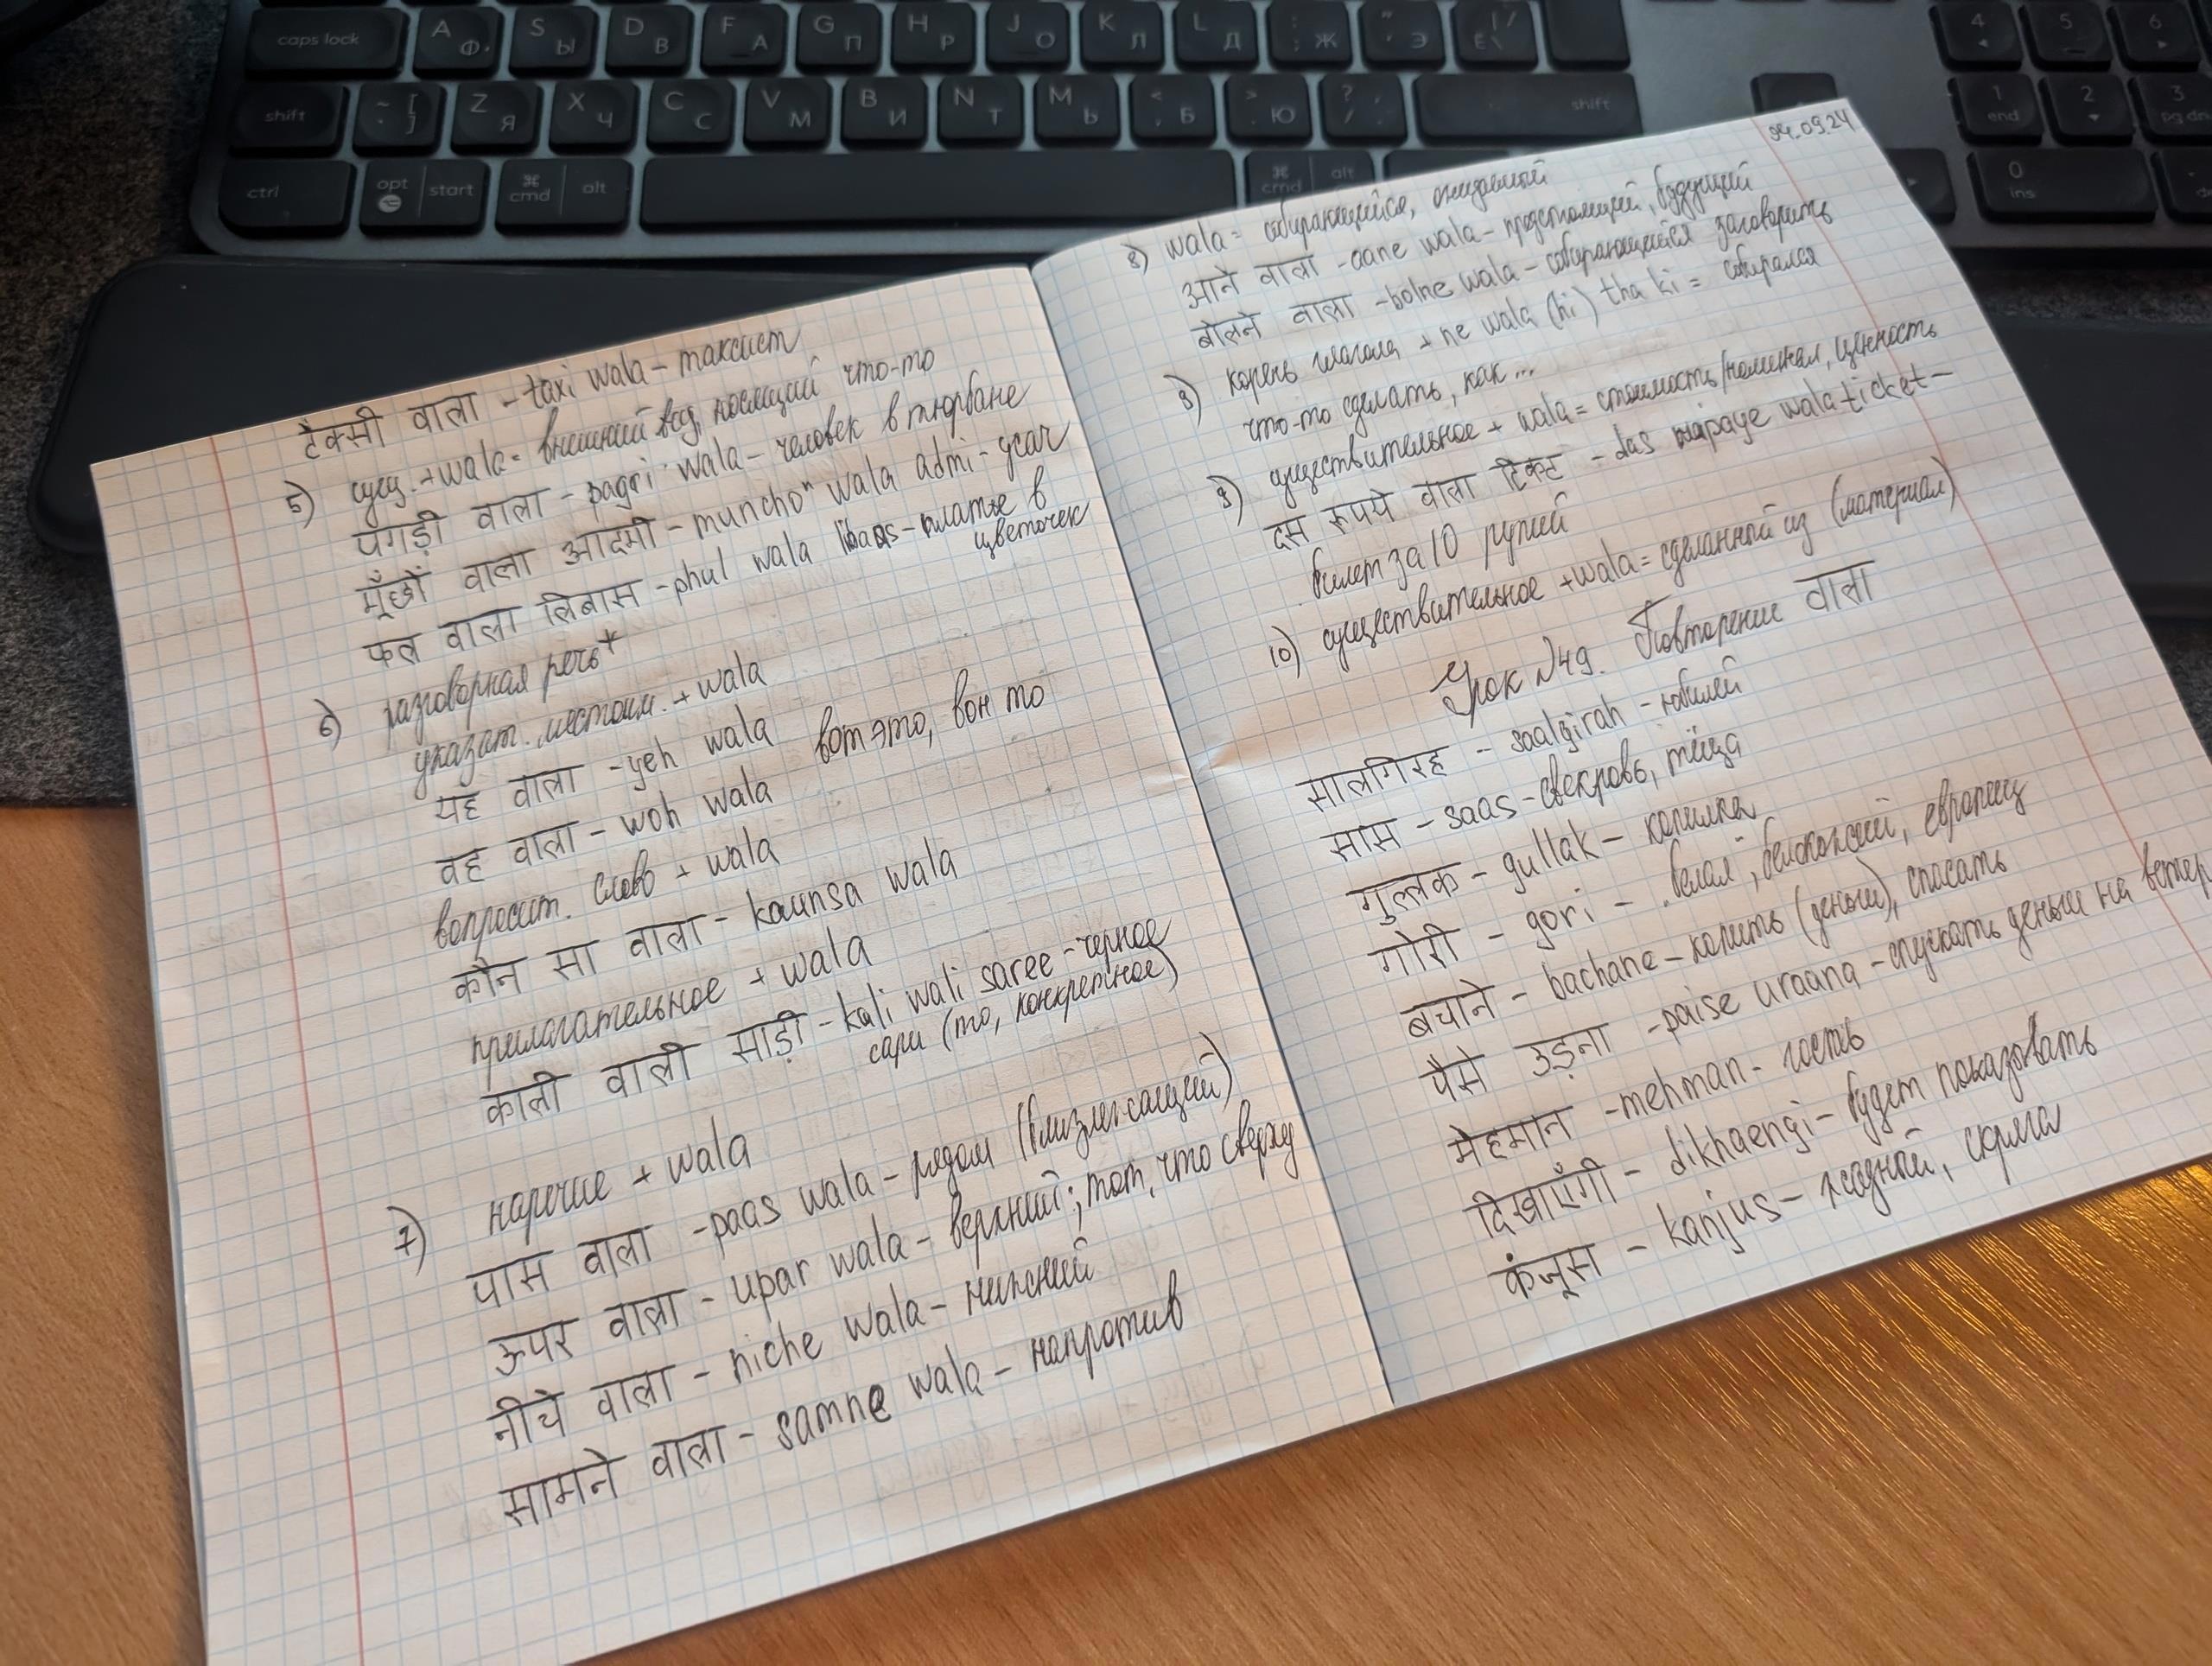 caps lock A Ф S Ы D В F А G П H Р J О K Л L Д : ; Ж " ' Э Ё 4 5 6
shift ~ [ ] Z Я X Ч C С V М B И N Т M Ь < , Б > . Ю ? / shift 1 end 2 3 pg dn
ctrl opt start ⌘ cmd alt ⌘ cmd alt 0 ins
टैक्सी वाला - taxi wala - таксист
5) сущ. + wala = внешний вид, носящий что-то
पगड़ी वाला - pagri wala - человек в тюрбане
मूँछों वाला आदमी - muncho" wala admi - усач
फल वाला लिबास - phul wala libaas - платье в
цветочек
6) разговорная речь*
указат. местоим. + wala
यह वाला - yeh wala вот это, вон то
वह वाला - woh wala
вопросит. слово + wala
कौन सा वाला - kaunsa wala
прилагательное + wala
काली वाली साड़ी - kali wali saree - черное
сари (то, конкретное)
7) наречие + wala
पास वाला - paas wala - рядом (близлежащий)
ऊपर वाला - upar wala - верхний; тот, что сверху
नीचे वाला - niche wala - нижний
सामने वाला - samne wala - напротив
24.09.24
8) wala = собирающийся, ожидаемый
आने वाला - aane wala - предстоящий, будущий
बोलने वाला - bolne wala - собирающийся заговорить
9) корень глагола + ne wala (hi) tha ki = собирался
что-то сделать, как...
9) существительное + wala = стоимость/номинал, ценность
दस रूपये वाला टिकट - das rupaye wala ticket -
билет за 10 рупий
10) существительное + wala = сделанный из (материал)
Урок №49. Повторение वाला
सालगिरह - saalgirah - юбилей
सास - saas - свекровь, тёща
गुल्लक - gullak - копилка
गोरी - gori - белая, белокожий, европеец
बचाने - bachane - копить (деньги), спасать
पैसे उड़ना - paise uraana - спускать деньги на ветер
मेहमान - mehman - гость
दिखाएँगी - dikhaengi - будет показывать
कंजूस - kanjus - жадный, скряга